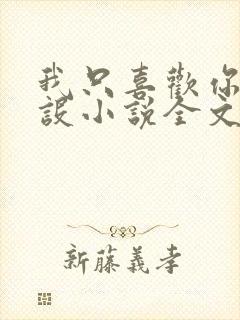 我只喜歡你
設小說全文
新藤義孝